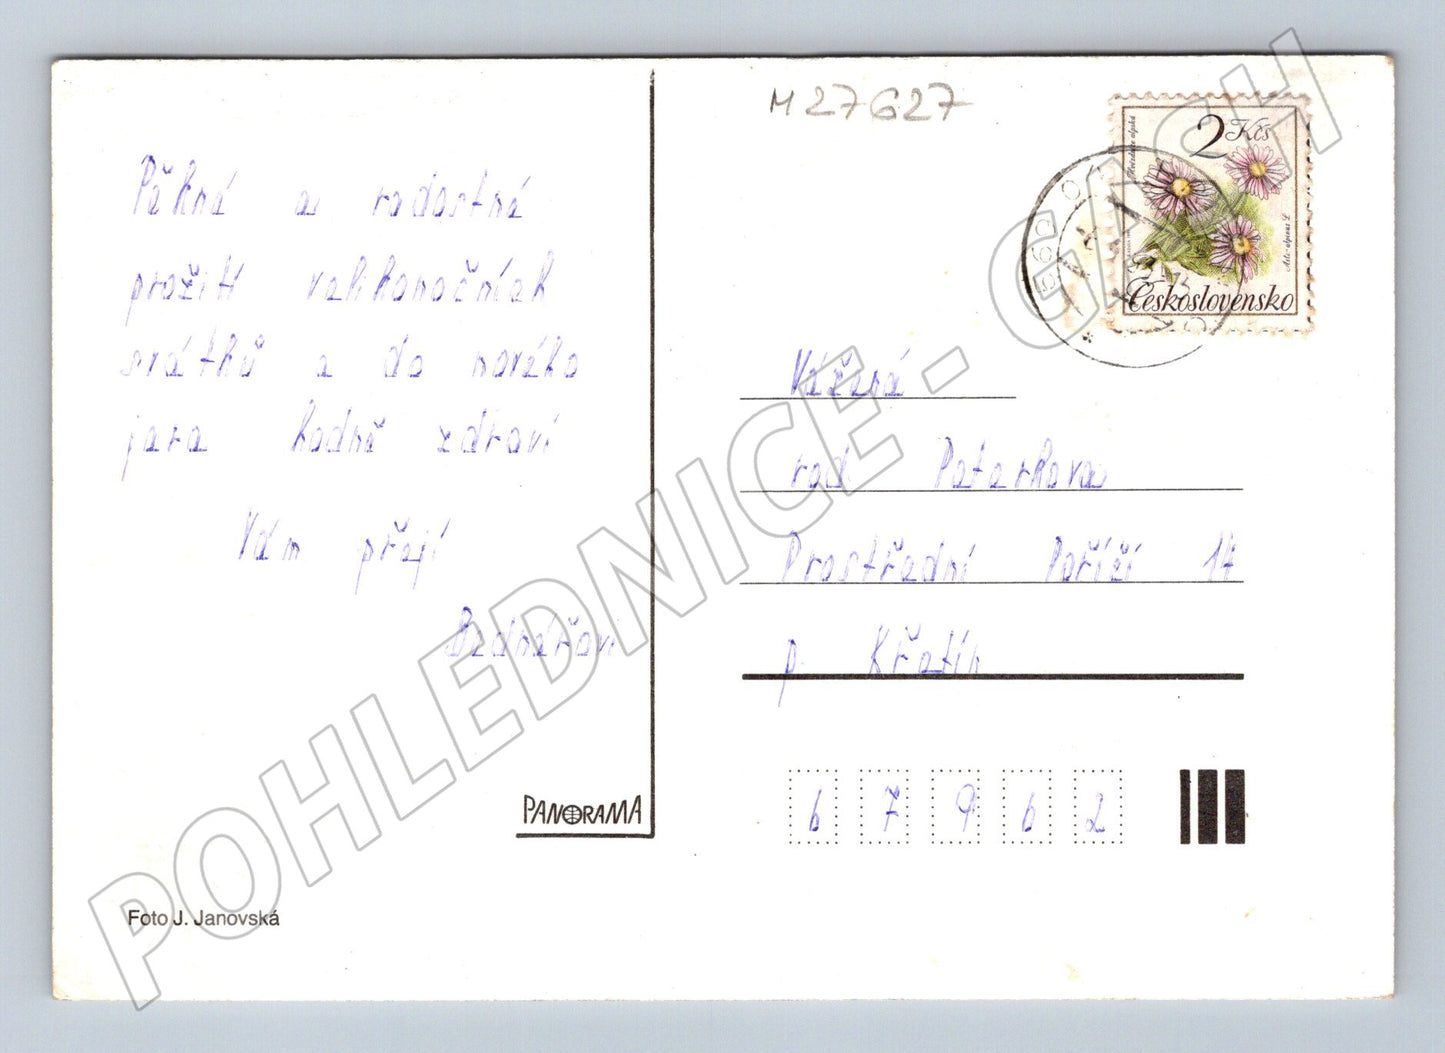 Pěkné a radostné
prožití velikonočních
svátků a do nového
jara hodně zdraví
Vám přejí
Bednářovi
PANORAMA
Foto J. Janovská
M 27627
2 Kčs
Hvězdnice alpská
Aster alpinus L.
Československo
Vážená
rod. Peterkova
Prostřední Poříčí 14
p. Křetín
6 7 9 6 2
POHLEDNICE - GASH